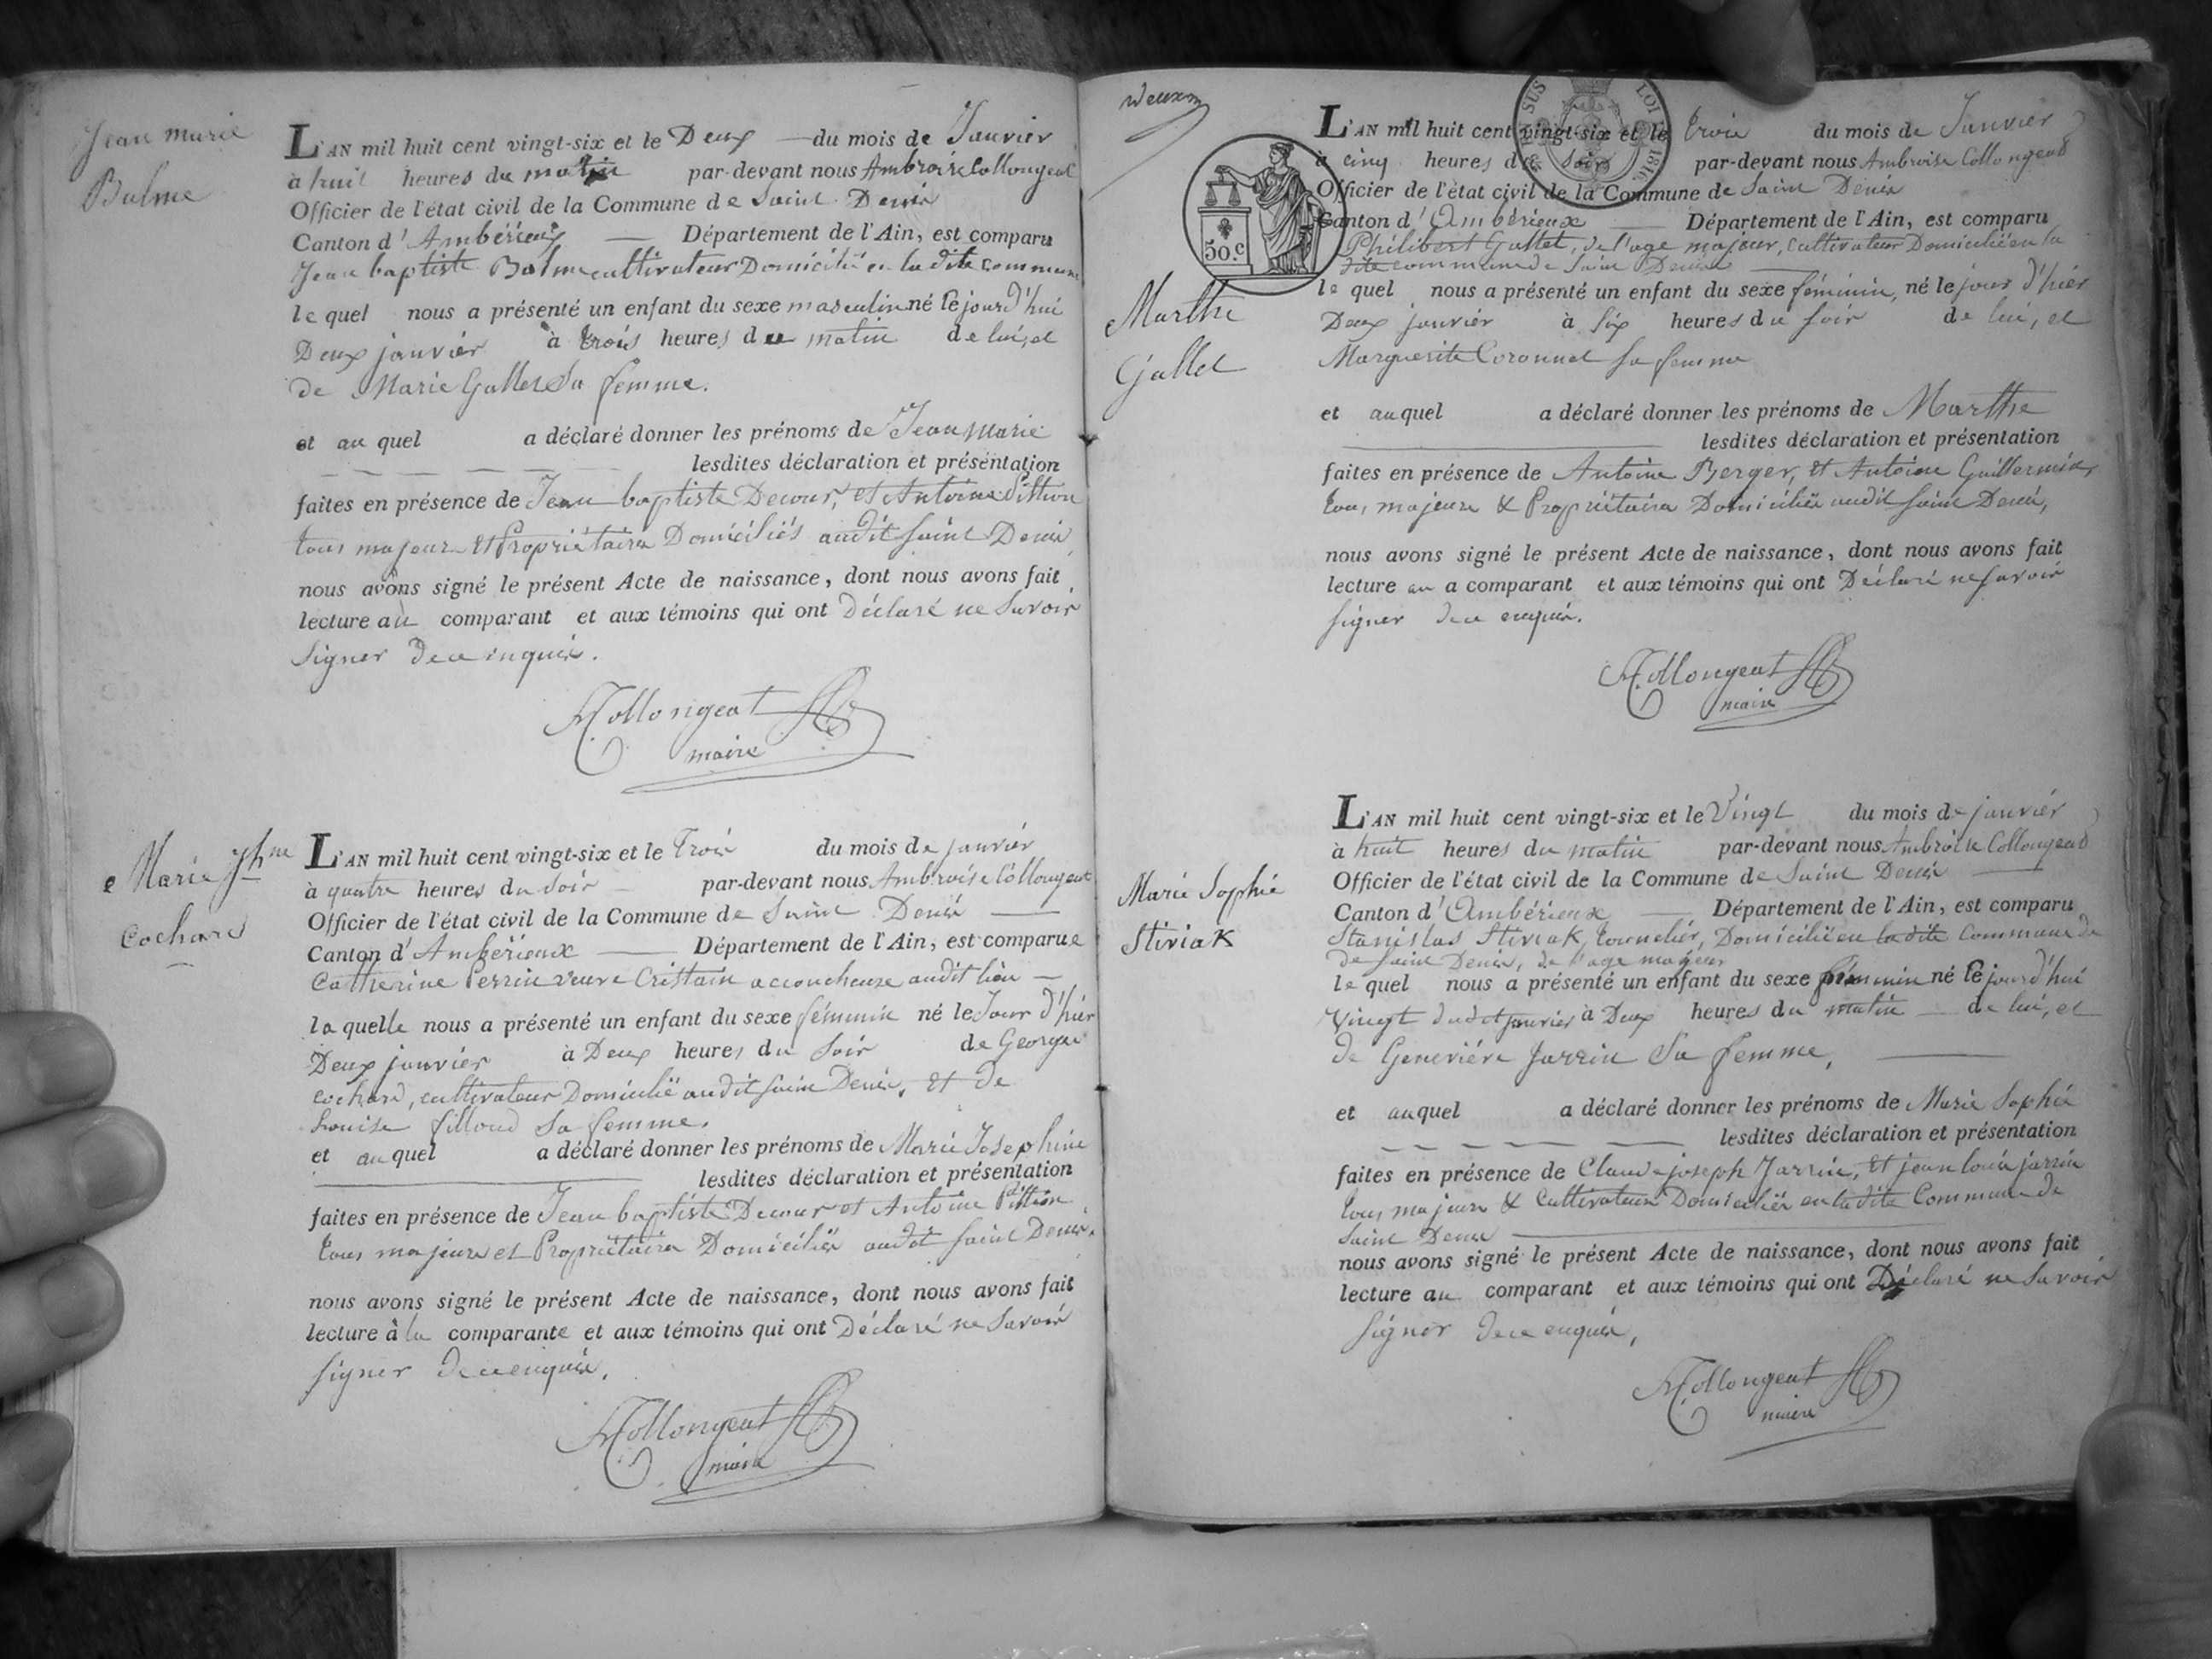 Jean marie
Balme
L'AN mil huit cent vingt-six et le Deux du mois de Janvier
à huit heures du matin par-devant nous Ambroise Collongeat
Officier de l'état civil de la Commune de Saint Denis
Canton d'Ambérieux Département de l'Ain, est comparu
Jean baptiste Balme cultivateur Domicilié en la dite commune
le quel nous a présenté un enfant du sexe masculin né le jourd'hui
Deux janvier à trois heures du matin de lui, et
de Marie Gallet Sa femme.
et au quel a déclaré donner les prénoms de Jean Marie
lesdites déclaration et présentation
faites en présence de Jean baptiste Decour, et Antoine Pittion
tous majeurs et Propriétaires Domiciliés audit Saint Denis
nous avons signé le présent Acte de naissance, dont nous avons fait
lecture au comparant et aux témoins qui ont Déclaré ne Savoir
Signer de ce enquis.
Collongeat
maire
Marie Jhne
Cochard
L'AN mil huit cent vingt-six et le Trois du mois de janvier
à quatre heures du Soir par-devant nous Ambroise Collongeat
Officier de l'état civil de la Commune de Saint Denis
Canton d'Ambérieux Département de l'Ain, est comparue
Catherine Perrin veuve Cristain accoucheuse audit lieu
la quelle nous a présenté un enfant du sexe féminin né le Jour d'hier
Deux janvier à Deux heures du Soir de George
cochard, cultivateur Domicilié audit Saint Denis, et de
Louise filloud Sa femme.
et au quel a déclaré donner les prénoms de Marie Josephine
lesdites déclaration et présentation
faites en présence de Jean baptiste Decour et Antoine Pittion
tous majeurs et Propriétaires Domiciliés audit Saint Denis.
nous avons signé le présent Acte de naissance, dont nous avons fait
lecture à la comparante et aux témoins qui ont Déclaré ne Savoir
Signer de ce enquis.
Collongeat
maire
deux
50.C
SUS LOI 1816
Marthe
Gallet
L'AN mil huit cent vingt-six et le trois du mois de Janvier
à cinq heures du Soir par-devant nous Ambroise Collongeat
Officier de l'état civil de la Commune de Saint Denis
Canton d'Ambérieux Département de l'Ain, est comparu
Philibert Gallet, de l'age majeur, cultivateur Domicilié en la
dite commune de Saint Denis
le quel nous a présenté un enfant du sexe féminin, né le jour d'hier
Deux janvier à Six heures du Soir de lui, et
Marguerite Coronnet Sa femme
et auquel a déclaré donner les prénoms de Marthe
lesdites déclaration et présentation
faites en présence de Antoine Berger, et Antoine Guillermin
tous majeurs & Propriétaires Domiciliés audit Saint Denis,
nous avons signé le présent Acte de naissance, dont nous avons fait
lecture au a comparant et aux témoins qui ont Déclaré ne Savoir
Signer de ce enquis.
Collongeat
maire
Marie Sophie
Stiviak
L'AN mil huit cent vingt-six et le Vingt du mois de janvier
à huit heures du matin par-devant nous Ambroise Collongeat
Officier de l'état civil de la Commune de Saint Denis
Canton d'Ambérieux Département de l'Ain, est comparu
Stanislas Stiviak, tonnelier, Domicilié en la dite Commune de
de Saint Denis, de l'age majeur
le quel nous a présenté un enfant du sexe féminin né le jourd'hui
Vingt dudit janvier à Deux heures du matin de lui, et
de Geneviéve Jarrin Sa femme,
et auquel a déclaré donner les prénoms de Marie Sophie
lesdites déclaration et présentation
faites en présence de Claude joseph Jarrin, et jean louis jarrin
tous majeurs & Cultivateurs Domiciliés en la dite Commune de
Saint Denis
nous avons signé le présent Acte de naissance, dont nous avons fait
lecture au comparant et aux témoins qui ont Déclaré ne Savoir
Signer de ce enquis,
Collongeat
maire